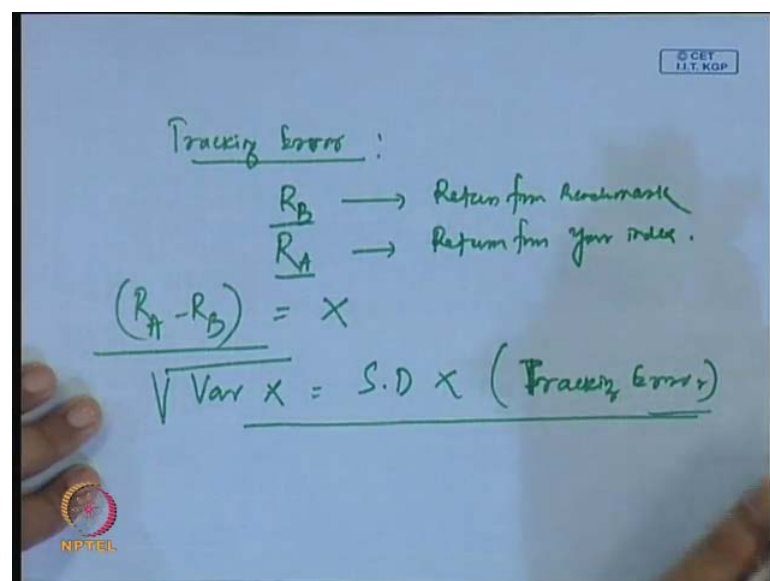 © CET
I.I.T. KGP
Tracking Error :
R_B → Return from Benchmark
R_A → Return from Your index.
(R_A - R_B) = X
√Var X = S.D X (Tracking Error)
NPTEL